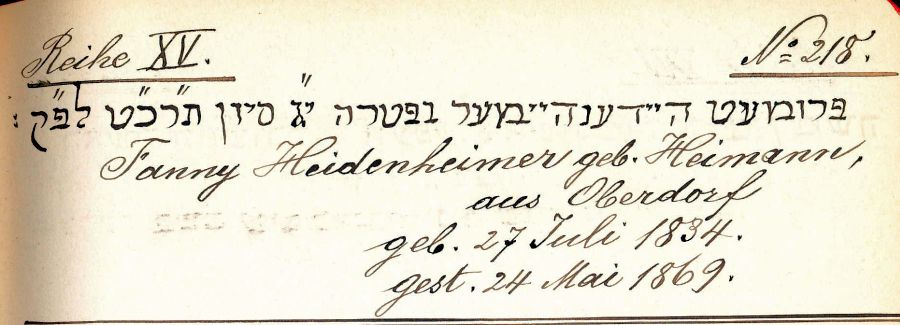 Reihe XV. No. 218.
פרומעט היידענהיימער נפטרה י״ג סיון תרכ״ט לפ״ק :
Fanny Heidenheimer geb. Heimann,
aus Oberdorf
geb. 27 Juli 1834.
gest. 24 Mai 1869.